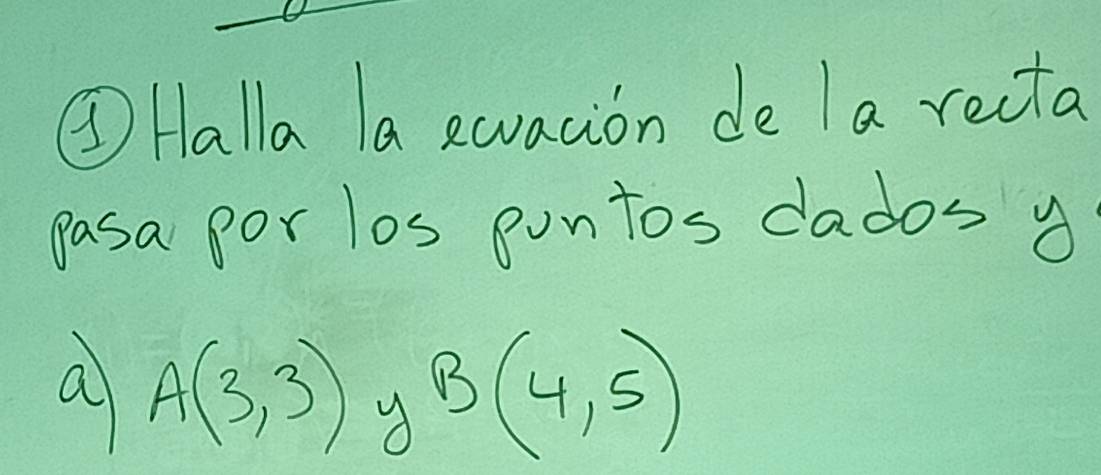 ① Halla la ecuación de la recta
pasa por los puntos dados y
a) A(3,3) y B(4,5)